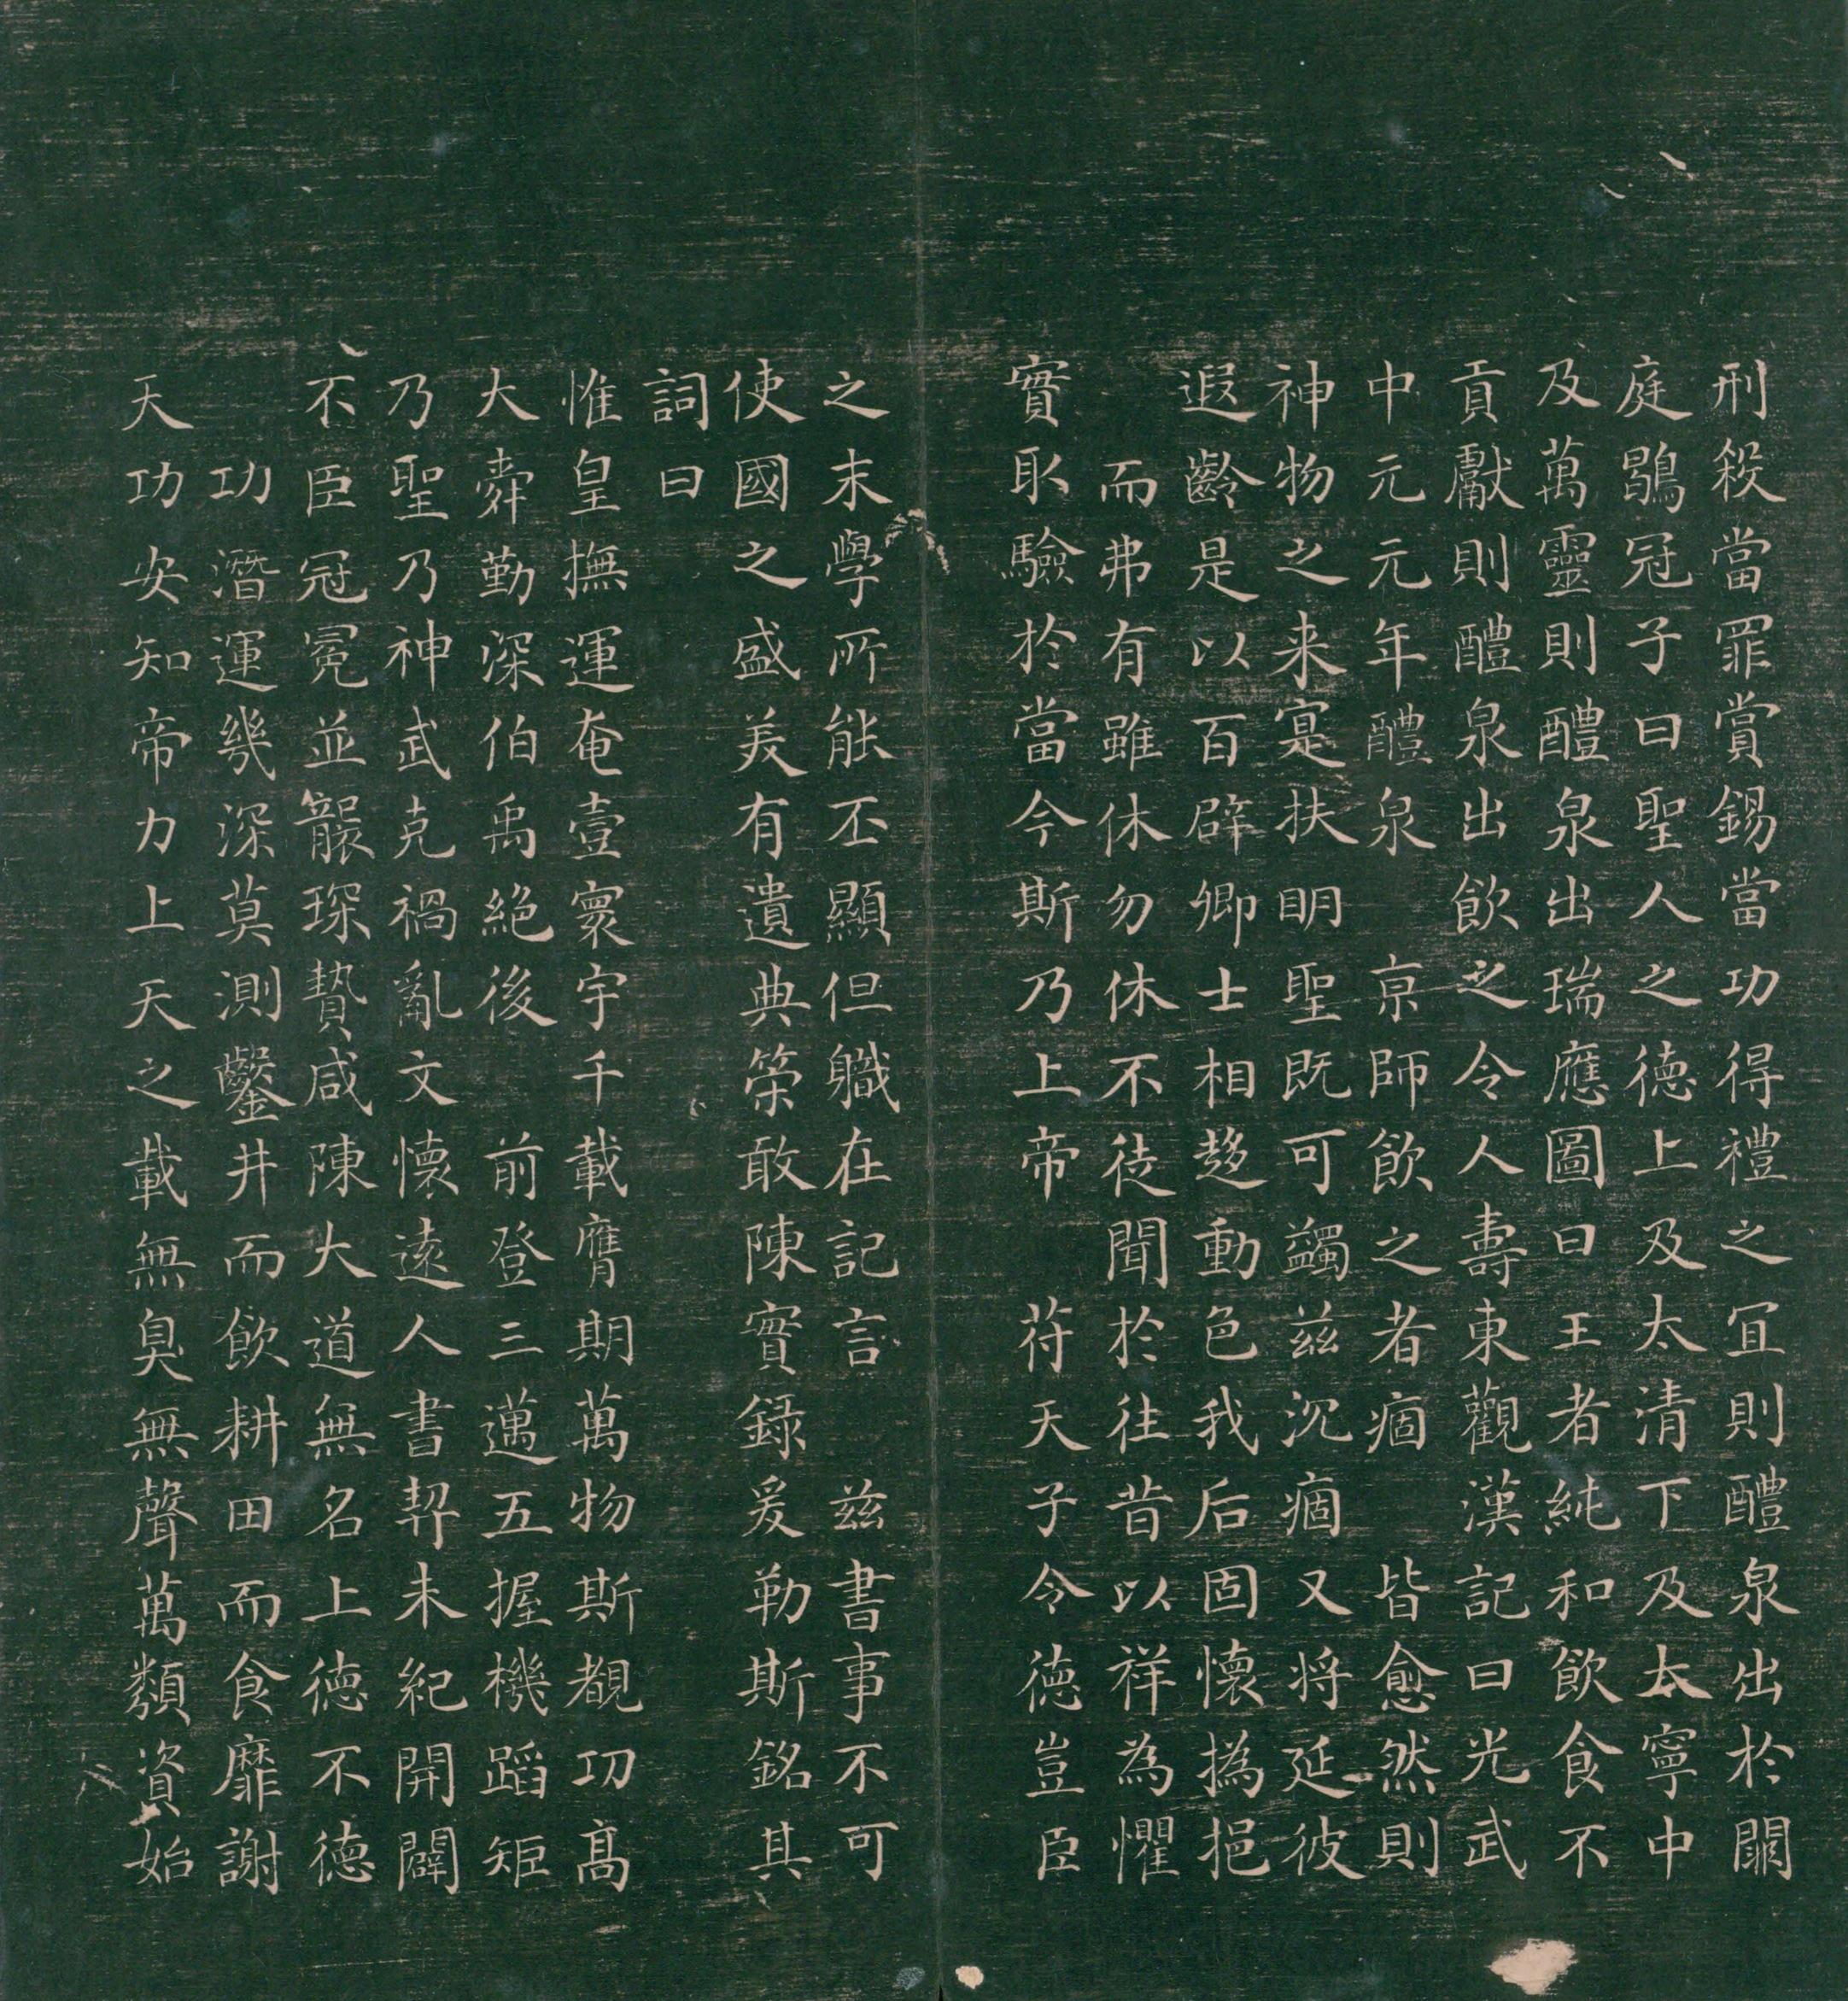 刑殺當罪賞錫當功得禮之冝則醴泉出於闕
庭鶡冠子曰聖人之德上及太清下及太寧中
及萬靈則醴泉出瑞應圖曰王者純和飲食不
貢獻則醴泉出飲之令人壽東觀漢記曰光武
中元元年醴泉 京師飲之者痼 皆愈然則
神物之来寔扶明聖既可蠲兹沉痼又将延彼
遐齡是以百辟卿士相趍動色我后固懷撝挹
而弗有雖休勿休不徒聞於往昔以祥為懼
實取驗於當今斯乃上帝 苻天子令德豈臣
之末學所能丕顯但職在記言 兹書事不可
使國之盛美有遺典策敢陳實錄爰勒斯銘其
詞曰
惟皇撫運奄壹寰宇千載膺期萬物斯覩功髙
大舜勤深伯禹絕後 前登三邁五握機蹈矩
乃聖乃神武克禍亂文懷遠人書契未紀開闢
不臣冠冕並襲琛贄咸陳大道無名上德不德
功潛運幾深莫測鑿井而飲耕田而食靡謝
天功安知帝力上天之載無臭無聲萬類資始